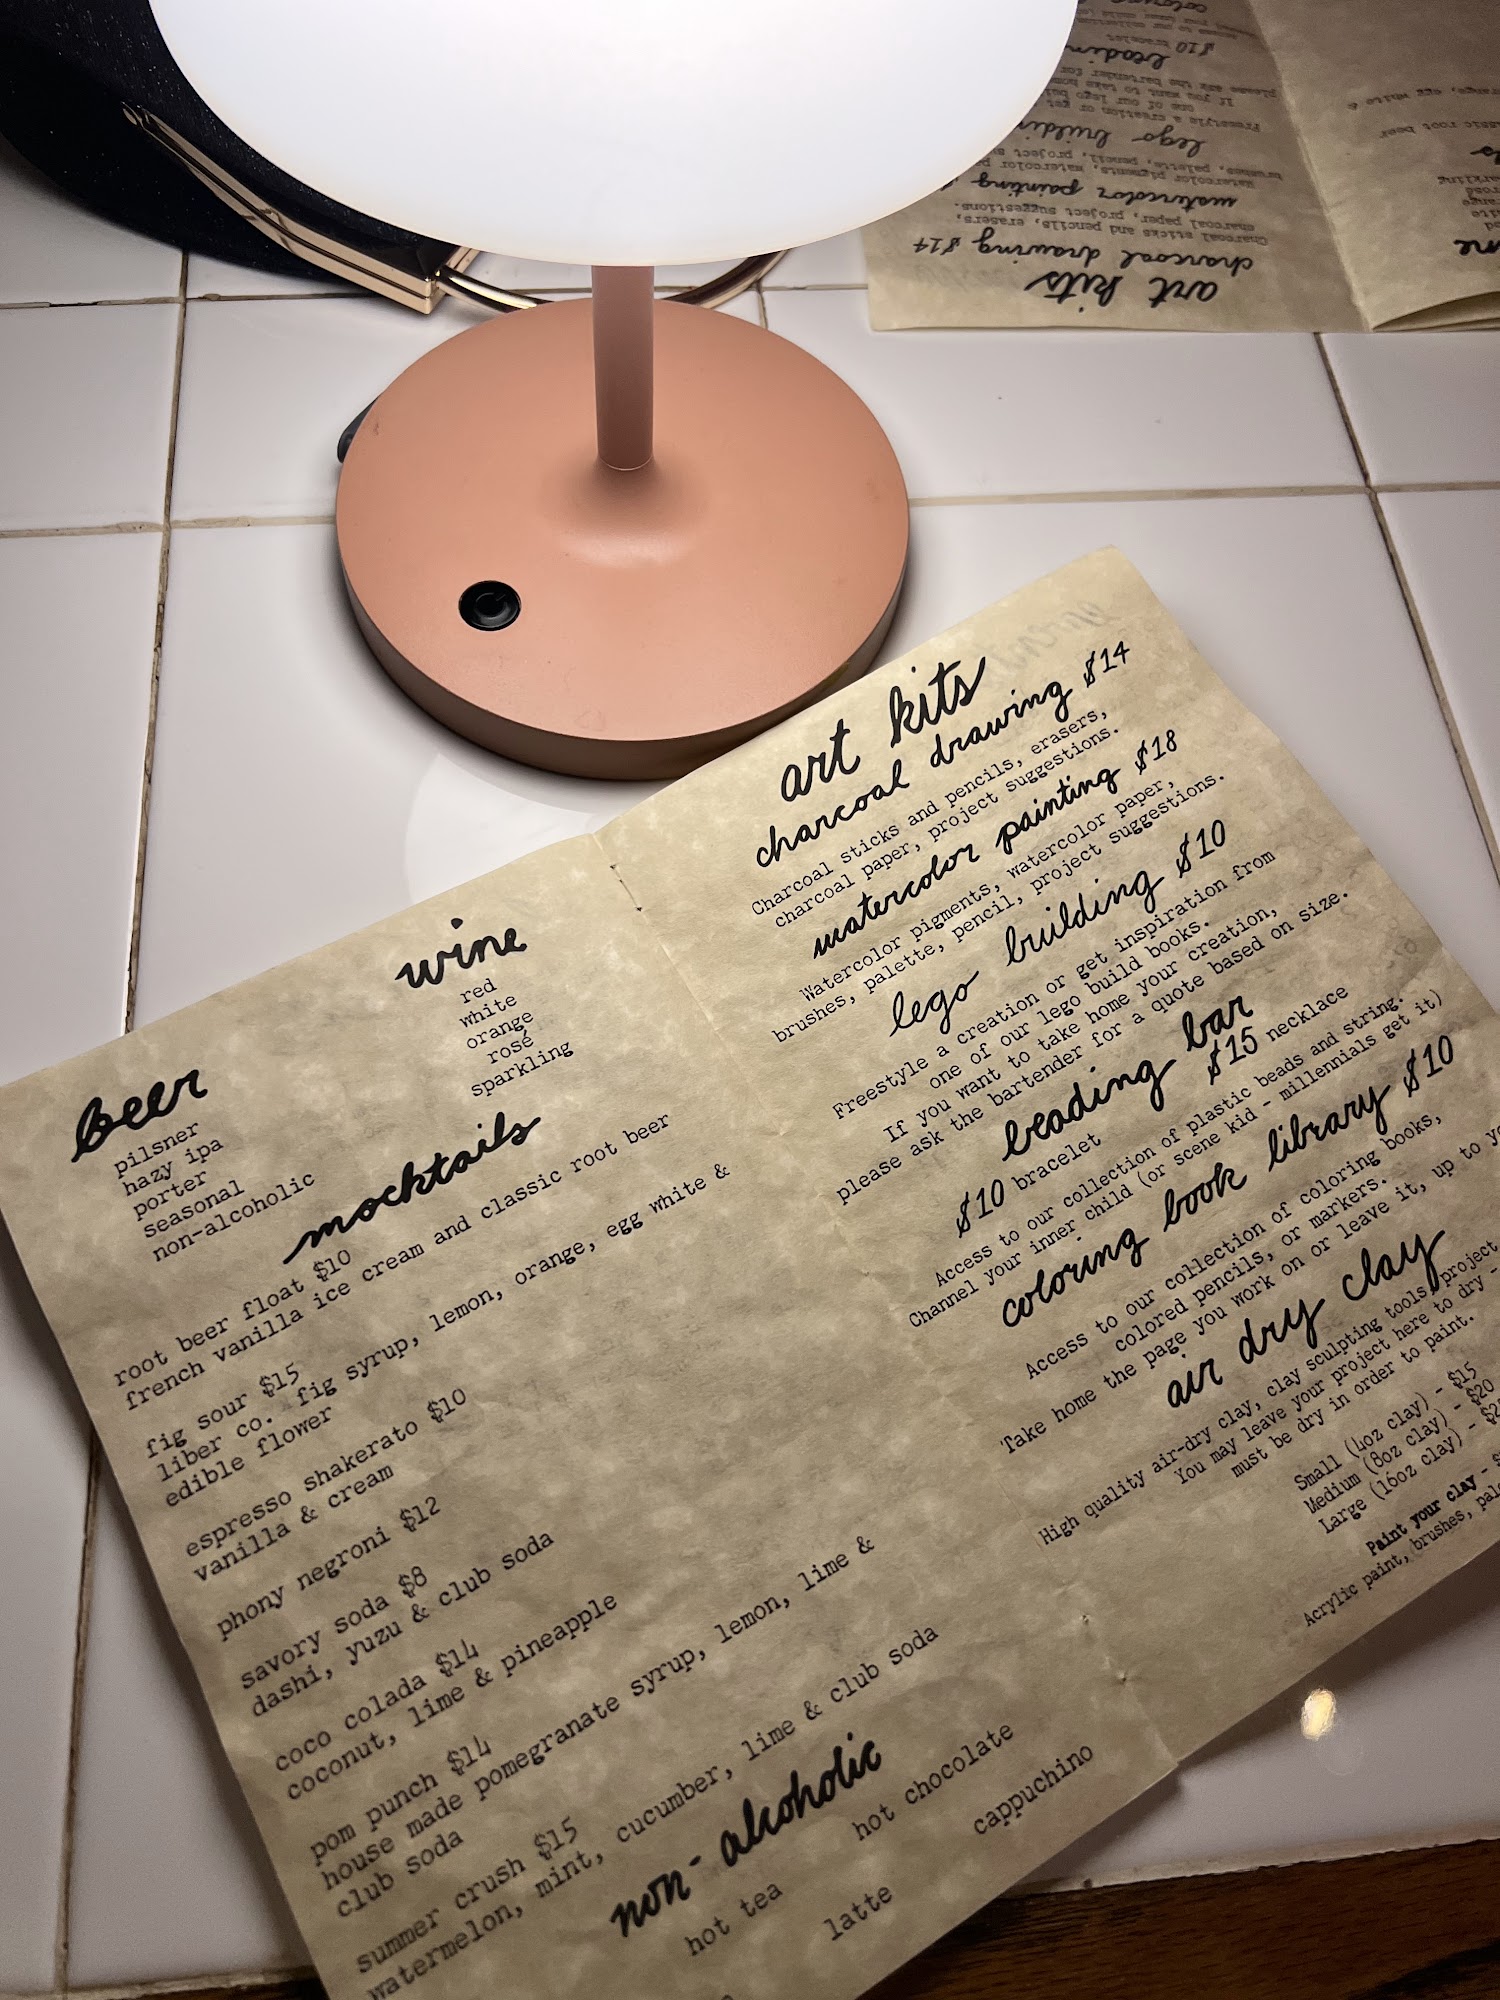 beer
pilsner
hazy ipa
porter
seasonal
non-alcoholic
wine
red
white
orange
rosé
sparkling
mocktails
root beer float $10
french vanilla ice cream and classic root beer
fig sour $15
liber co. fig syrup, lemon, orange, egg white &
edible flower
espresso shakerato $10
vanilla & cream
phony negroni $12
savory soda $8
dashi, yuzu & club soda
coco colada $14
coconut, lime & pineapple
pom punch $14
house made pomegranate syrup, lemon, lime &
club soda
summer crush $15
watermelon, mint, cucumber, lime & club soda
non-alcoholic
hot tea
hot chocolate
latte
cappuchino
art kits
charcoal drawing $14
Charcoal sticks and pencils, erasers,
charcoal paper, project suggestions.
watercolor painting $18
Watercolor pigments, watercolor paper,
brushes, palette, pencil, project suggestions.
lego building $10
Freestyle a creation or get inspiration from
one of our lego build books.
If you want to take home your creation,
please ask the bartender for a quote based on size.
beading bar
$10 bracelet $15 necklace
Access to our collection of plastic beads and string.
Channel your inner child (or scene kid - millennials get it)
coloring book library $10
Access to our collection of coloring books,
colored pencils, or markers.
Take home the page you work on or leave it, up to
air dry clay
High quality air-dry clay, clay sculpting tools, project
You may leave your project here to dry -
must be dry in order to paint.
Small (4oz clay) - $15
Medium (8oz clay) - $20
Large (16oz clay) -
Paint your clay -
Acrylic paint, brushes,
art kits
charcoal drawing $14
Charcoal sticks and pencils, erasers,
charcoal paper, project suggestions.
watercolor painting
Watercolor pigments, watercolor
brushes, palette, pencil, project
lego buildin
Freestyle a creation or get
one of our lego bui
If you want to take home
please ask the bartender for
beadin
$10 bracelet
classic root beer
orange, egg white &